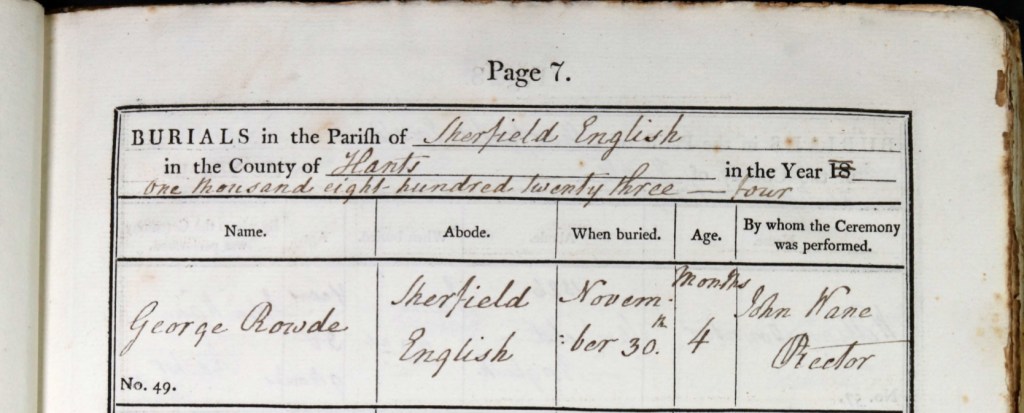 Page 7.
BURIALS in the Pariſh of Sherfield English
in the County of Hants in the Year 18
one thousand eight hundred twenty three — four
Name. Abode. When buried. Age. By whom the Ceremony was performed.
George Rowde Sherfield English Novem- :ber 30.th Months 4 John Wane Rector
No. 49.